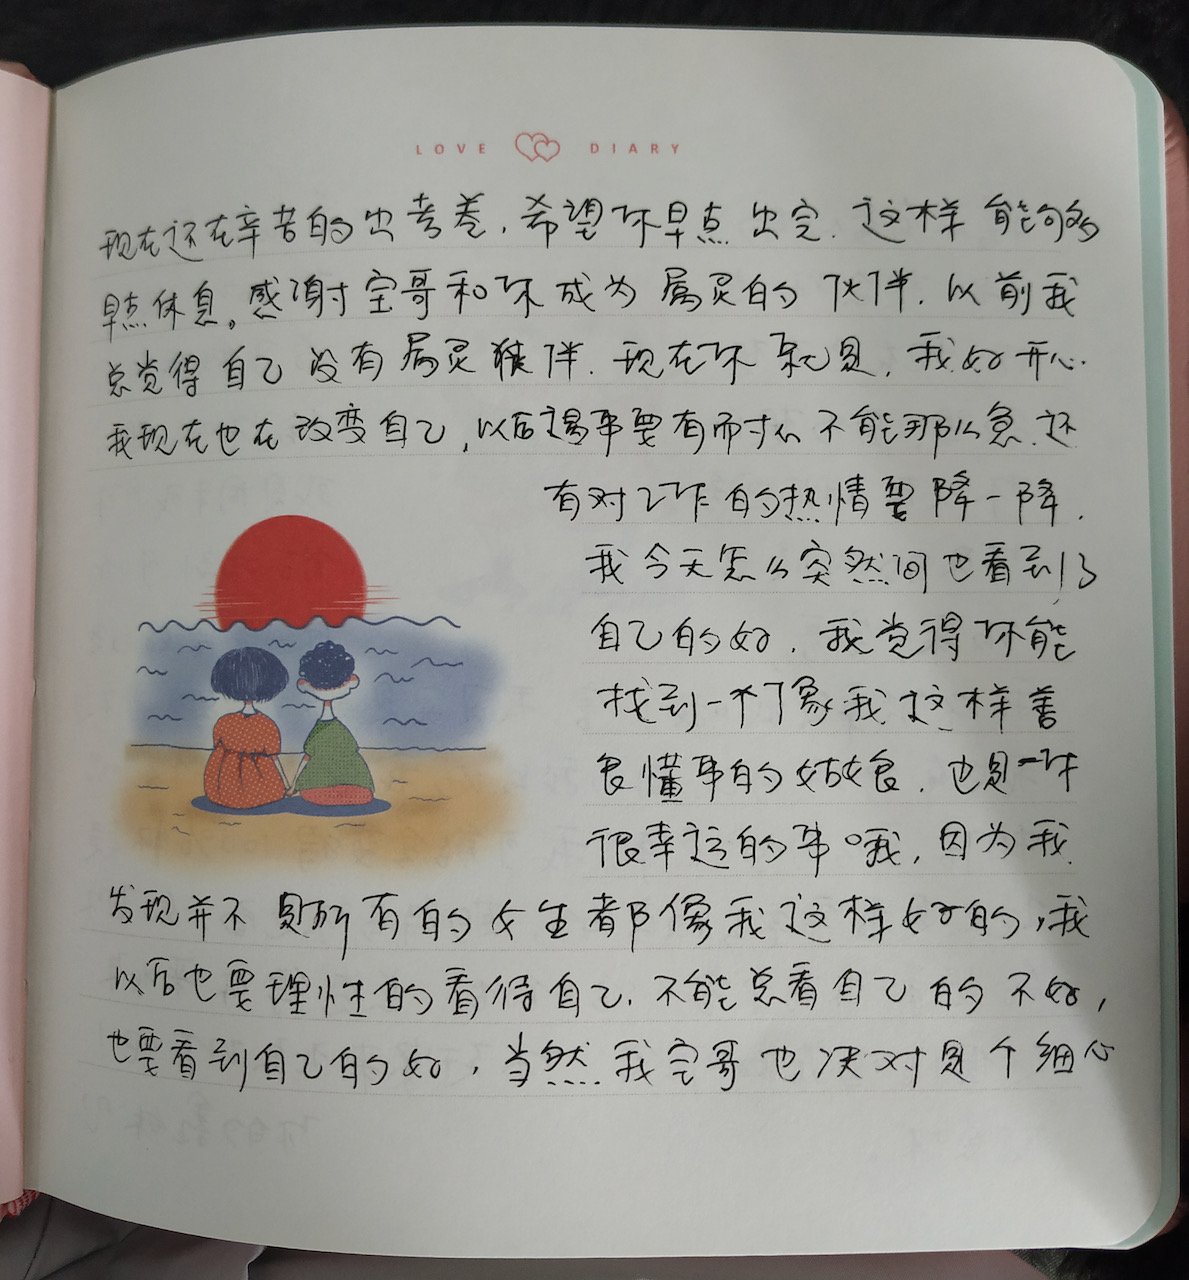 LOVE DIARY
现在还在辛苦的出考卷，希望你早点出完．这样能够
早点休息。感谢宝哥和你成为属灵的伙伴．以前我
总觉得自己没有属灵伙伴．现在你就是，我好开心．
我现在也在改变自己，以后遇事要有耐心不能那么急．还
有对工作的热情要降一降．
我今天怎么突然间也看到了
自己的好．我觉得你能
找到一个像我这样善
良懂事的姑娘．也是一件
很幸运的事哦，因为我
发现并不是所有的女生都像我这样好的，我
以后也要理性的看待自己．不能总看自己的不好，
也要看到自己的好，当然我宝哥也决对是个细心